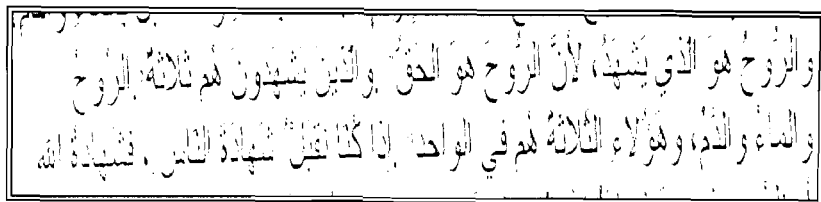 والرُّوحُ هوَ الَّذي يَشهَدُ، لأنَّ الرُّوحَ هوَ الحَقُّ. والَّذينَ يَشهَدونَ هُم ثلاثَةٌ: الرُّوحُ
والماءُ والدَّمُ، وهَؤُلاءِ الثَّلاثَةُ هُم في الواحدِ. إذا كُنَّا نَقبَلُ شَهادَةَ النّاسِ، فشَهادَةُ الله